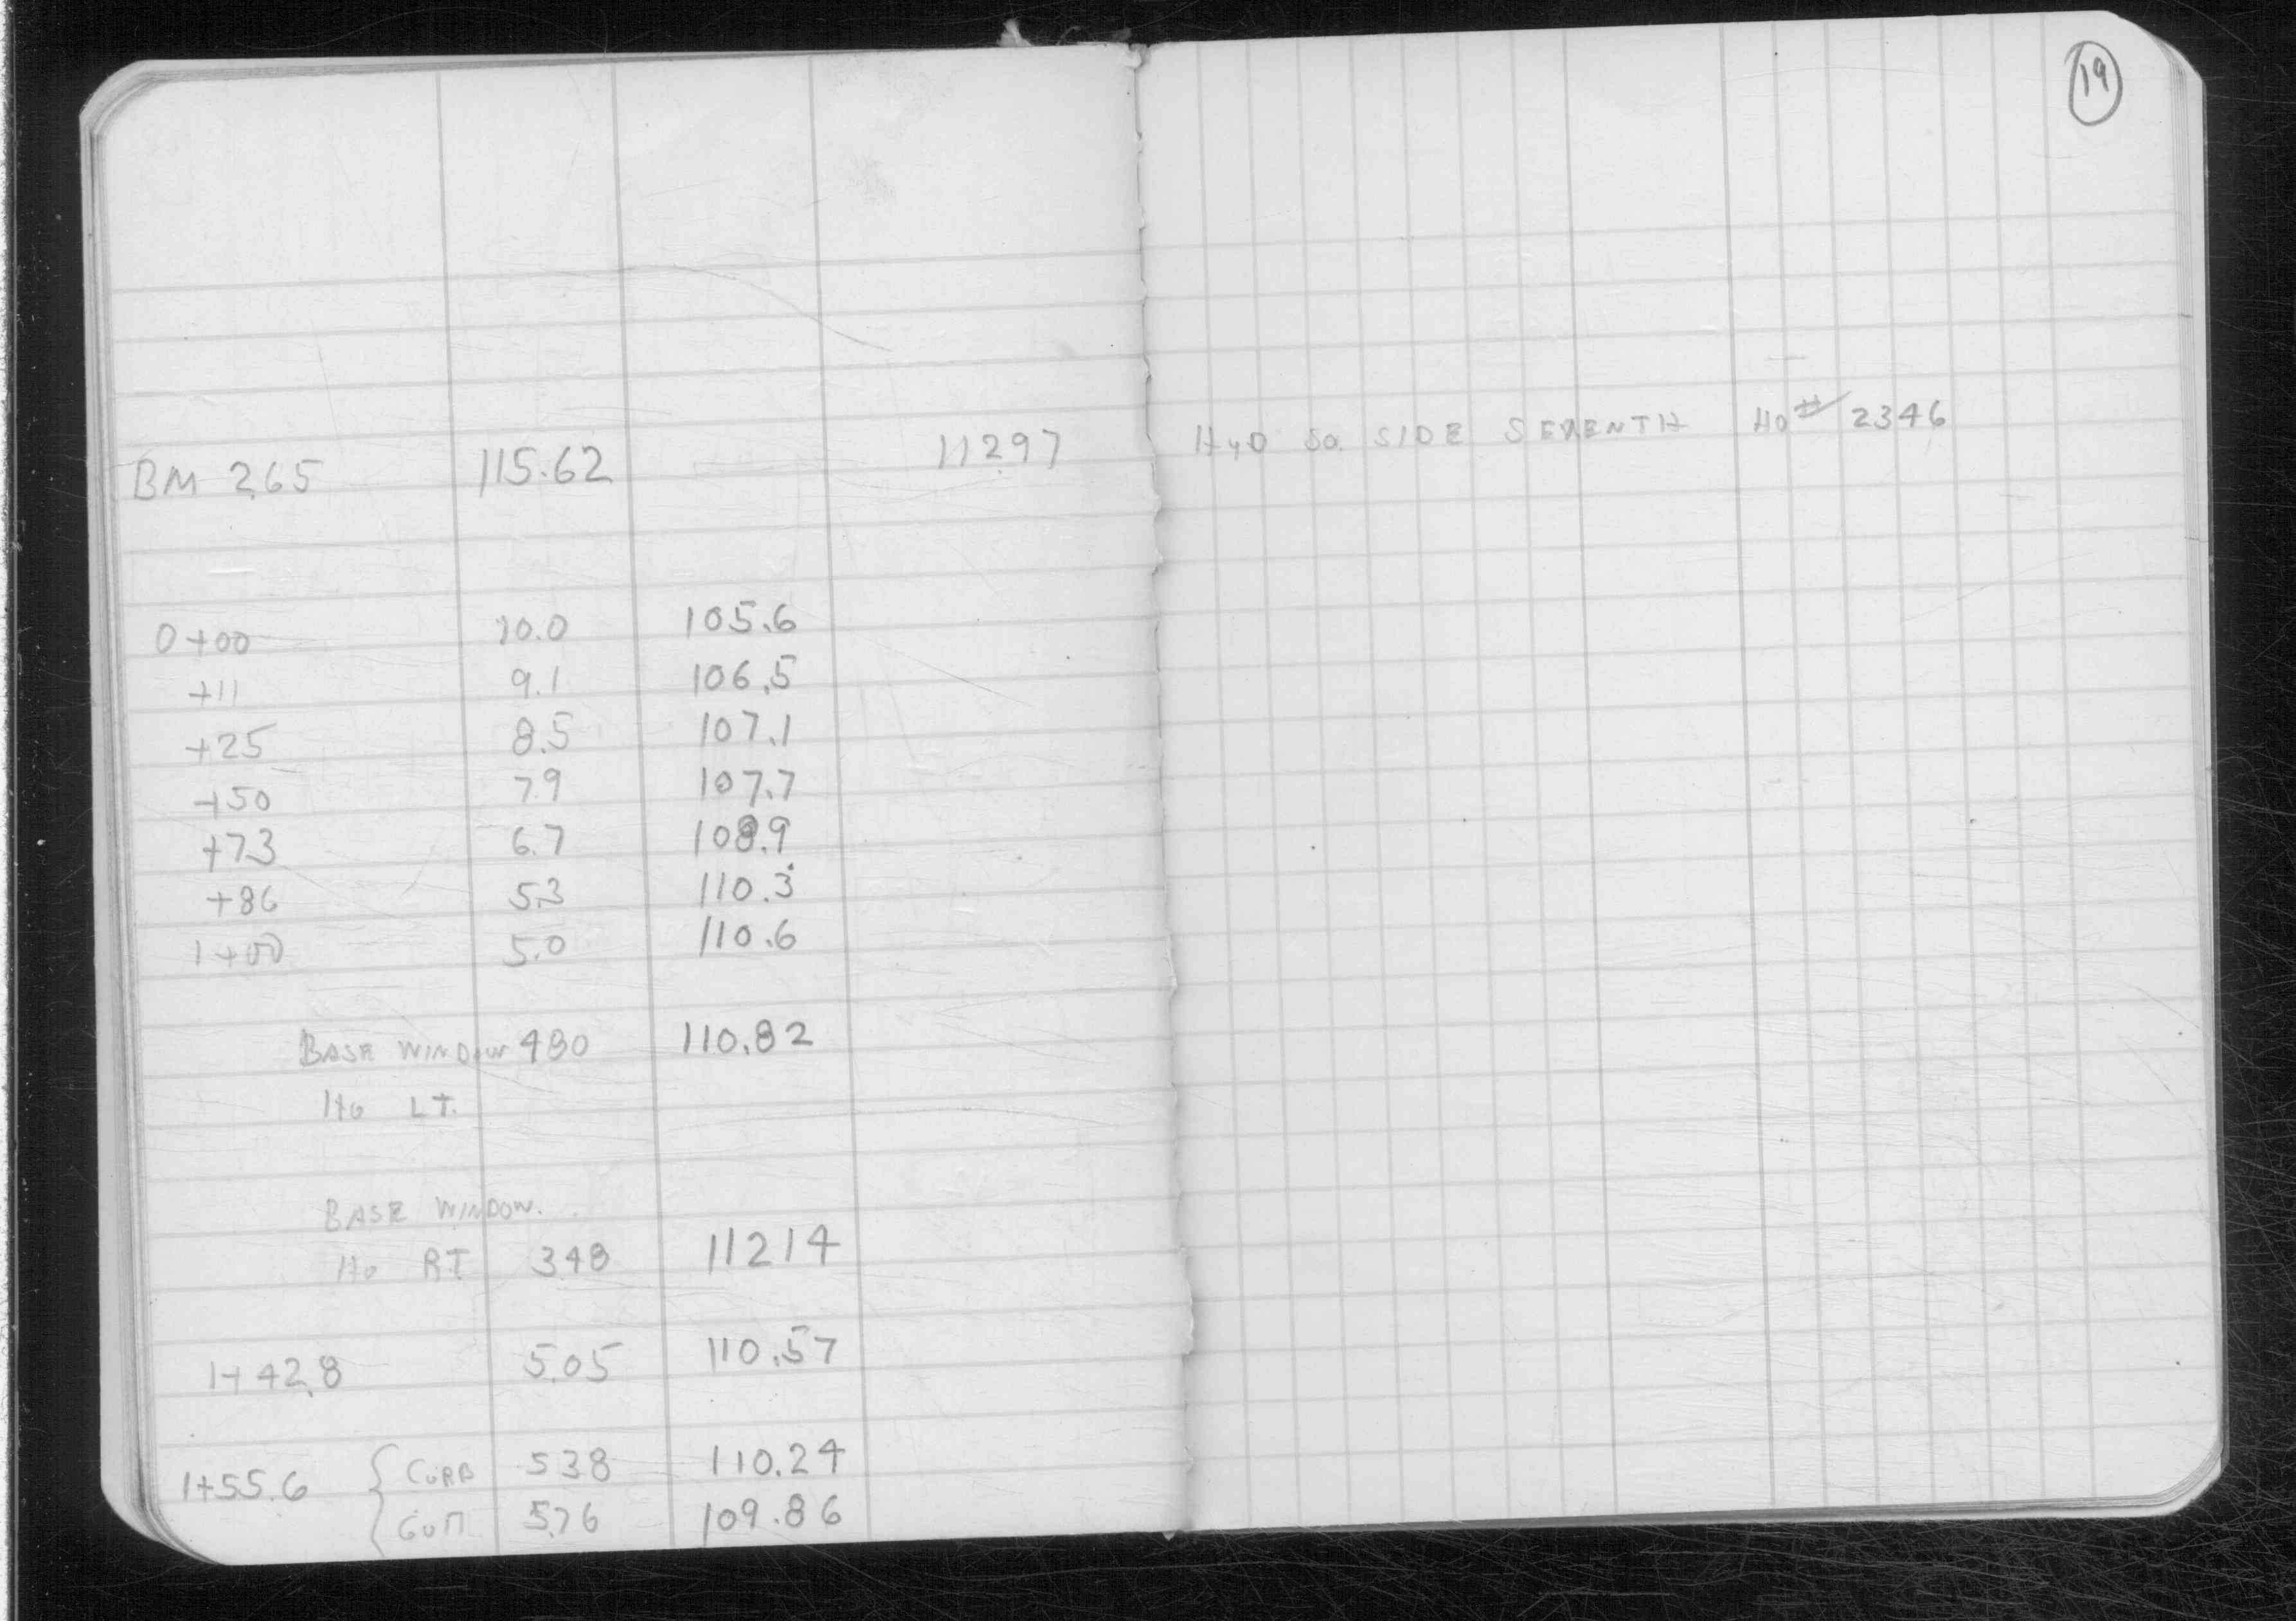 19
BM 2.65 115.62 112.97 HYD SO. SIDE SEVENTH HO # 2346
0+00 10.0 105.6
+11 9.1 106.5
+25 8.5 107.1
+50 7.9 107.7
+73 6.7 108.9
+86 5.3 110.3
1+00 5.0 110.6
BASE WINDOW 480 110.82
HO LT.
BASE WINDOW.
HO RT 348 11214
1+42.8 5.05 110.57
1+55.6 { CURB 538 110.24
GUTT 576 109.86